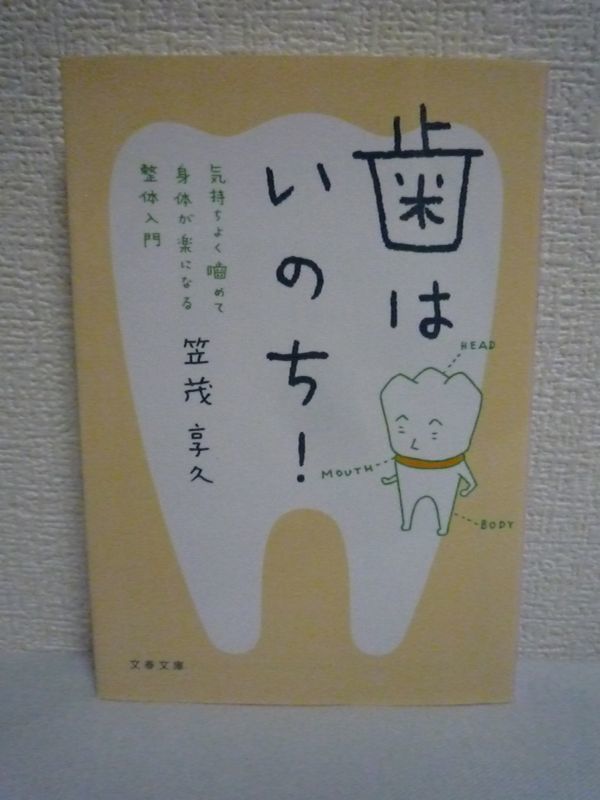 歯は
いのち!
気持ちよく噛めて
身体が楽になる
整体入門
笠茂享久
HEAD
MOUTH
BODY
文春文庫